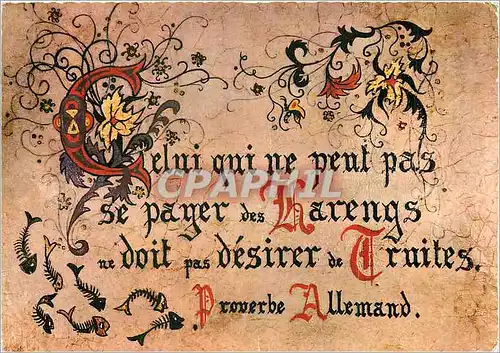 Celui qui ne peut pas
se payer des Harengs
ne doit pas désirer de Truites.
Proverbe Allemand.
CPAPHIL